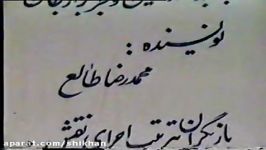 نویسنده :
محمدرضا طالع
بازیگران بترتیب اجرای نقش
aparat.com/shikhan